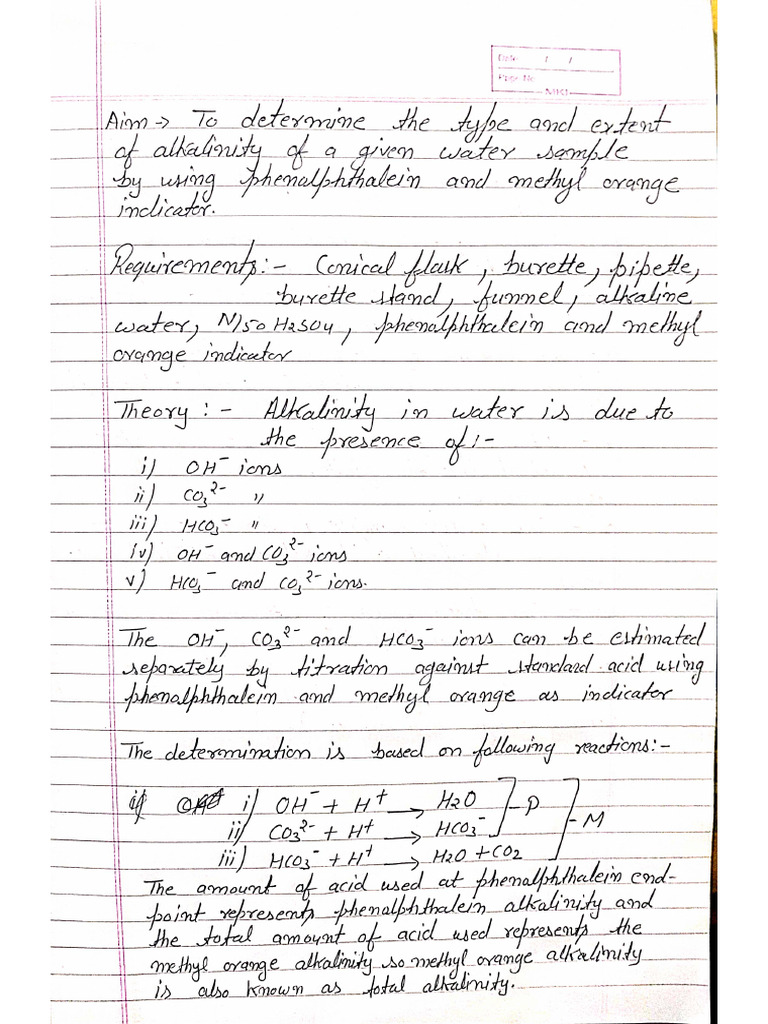 Date / /
Page No.
MKI
Aim → To determine the type and extent
of alkalinity of a given water sample
by using phenalphthalein and methyl orange
indicator.
Requirements:- Conical flask, burette, pipette,
burette stand, funnel, alkaline
water, N/50 H2SO4, phenalphthalein and methyl
orange indicator
Theory :- Alkalinity in water is due to
the presence of :-
i) OH⁻ ions
ii) CO₃²⁻ "
iii) HCO₃⁻ "
iv) OH⁻ and CO₃²⁻ ions
v) HCO₃⁻ and CO₃²⁻ ions.
The OH⁻, CO₃²⁻ and HCO₃⁻ ions can be estimated
separately by titration against standard acid using
phenalphthalein and methyl orange as indicator
The determination is based on following reactions:-
i) OH⁻ + H⁺ → H2O
ii) CO₃²⁻ + H⁺ → HCO₃⁻ - P
iii) HCO₃⁻ + H⁺ → H2O + CO2 - M
The amount of acid used at phenalphthalein end-
point represents phenalphthalein alkalinity and
the total amount of acid used represents the
methyl orange alkalinity so methyl orange alkalinity
is also known as total alkalinity.